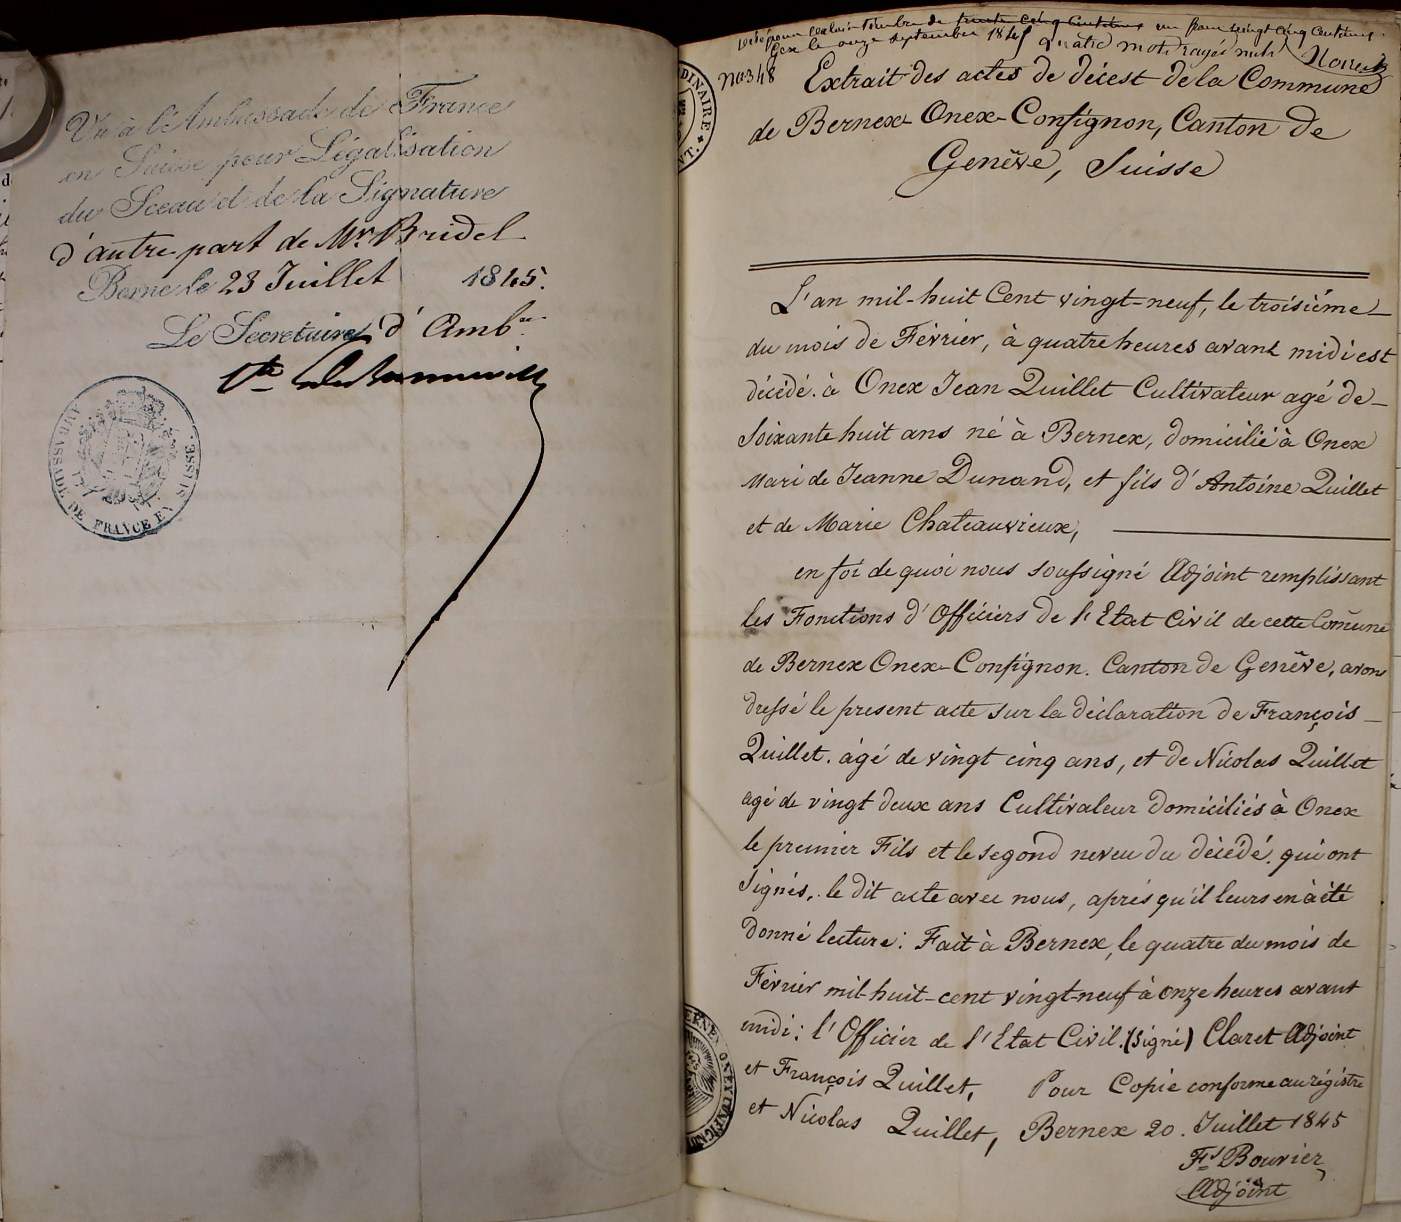 Vu à l'Ambassade de France
en Suisse pour Légalisation
du Sceau et de la Signature
d'autre part de Mr. Bridel
Berne le 23 Juillet 1845.
Le Secretaire d'Amb.
AMBASSADE DE FRANCE EN SUISSE.
visé pour valoir timbre de trente cinq centimes un franc vingt cinq centimes.
Gex le onze septembre 1845 quatre mots rayés nuls
No 348
DINAIRE
Extrait des actes de décest de la Commune
de Bernex-Onex-Confignon, Canton de
Genêve, Suisse
L'an mil-huit Cent vingt-neuf, le troisiéme
du mois de Février, à quatre heures avant midi est
décédé à Onex Jean Quillet Cultivateur agé de
Soixante huit ans né à Bernex, domicilié à Onex
Mari de Jeanne Dunand, et fils d'Antoine Quillet
et de Marie Chateauvieux,
en foi de quoi nous soussigné Adjoint remplissant
les Fonctions d'Officiers de l'Etat Civil de cette Com̃une
de Bernex Onex-Confignon. Canton de Genêve, avons
dressé le present acte sur la déclaration de François
Quillet. âgé de vingt cinq ans, et de Nicolas Quillet
agé de vingt deux ans Cultivateur domiciliés à Onex
le premier Fils et le segond neveu du décédé. qui ont
Signés, le dit acte avec nous, aprés qu'il leurs en à été
donné lecture: Fait à Bernex, le quatre du mois de
Février mil-huit-cent vingt-neuf à onze heures avant
midi: l'Officier de l'Etat Civil. (Signé) Claret Adjoint
et François Quillet, Pour Copie conforme au régistre
et Nicolas Quillet, Bernex 20. Juillet 1845
Fs Bouvier
Adjoint
BERNEX ONEX CONFIGNON